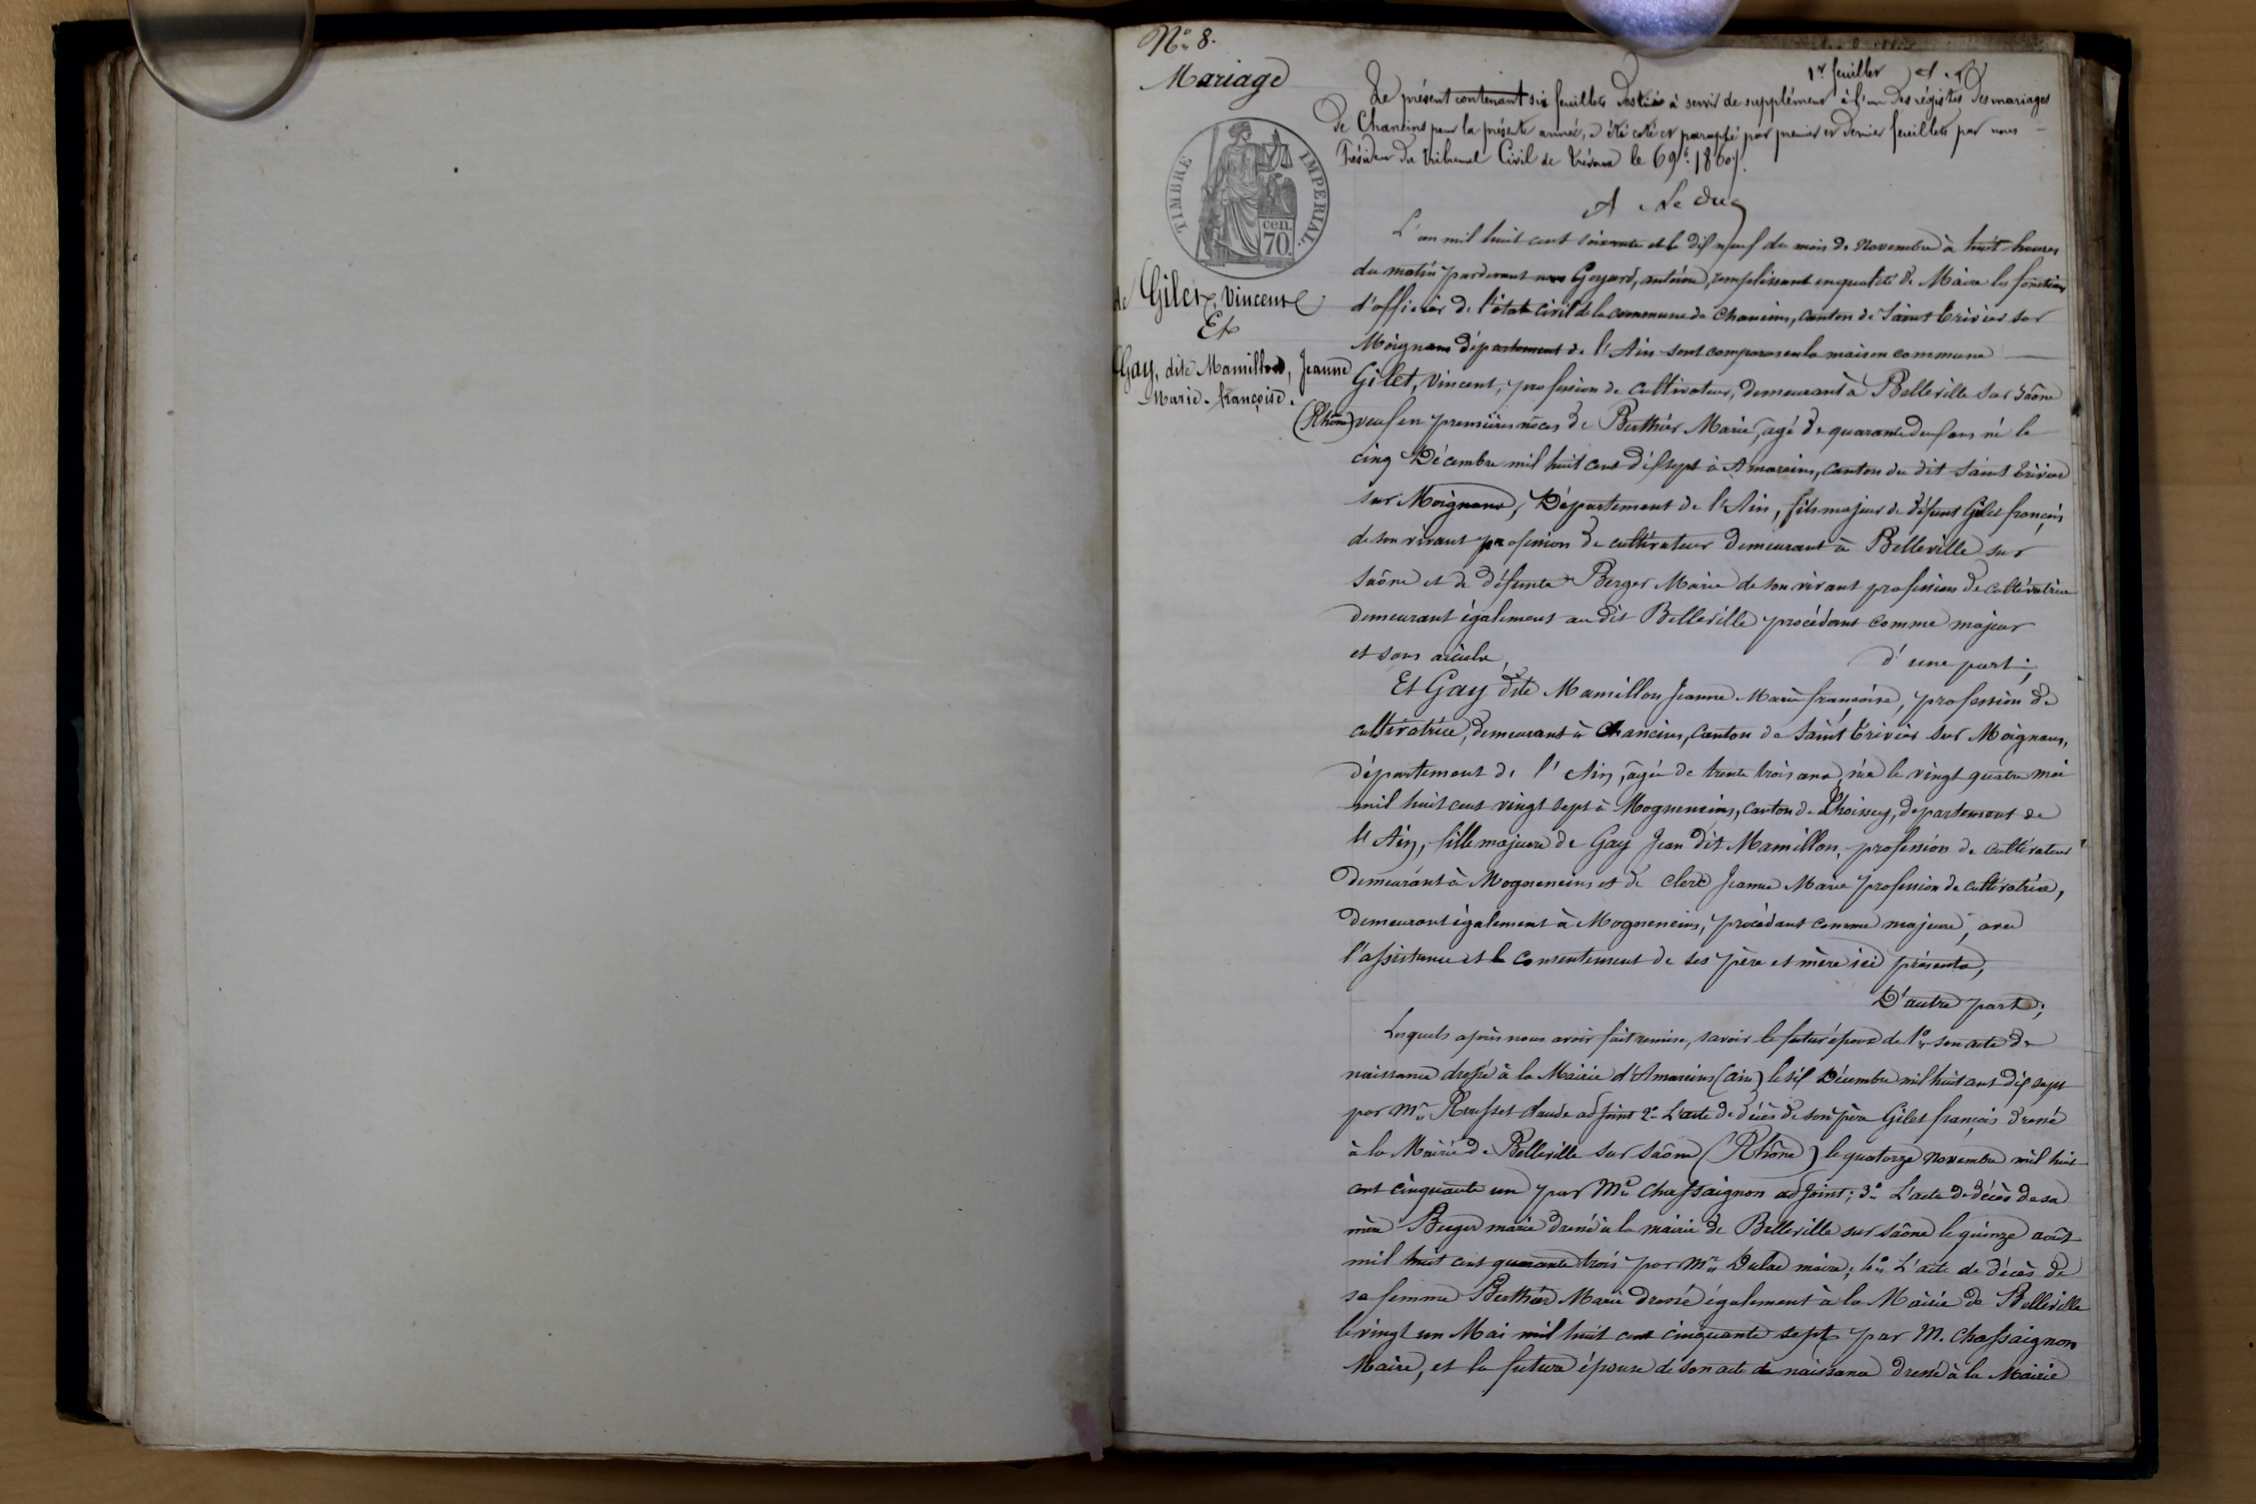 Nº 8.
Mariage
1er feuillet
Le présent contenant six feuillets destiné à servir de supplément à l'un des régistres des mariages
de Chaneins pour la présente année, a été coté et paraphé par premier et dernier feuillets par nous
Président du tribunal Civil de Trévoux le 6 9bre 1860.
A Le duc
TIMBRE IMPERIAL.
cen.
70.
de Gilet, Vincent
Et
Gay, dite Mamillon, Jeanne
Marie-françoise.
L'an mil huit cent soixante et le dix neuf du mois de novembre à huit heures
du matin pardevant nous Goyard, antoine, remplissant en qualité de Maire les fonctions
d'officier de l'état civil de la commune de Chaneins, canton de Saint Trivier sur
Moignans département de l'Ain sont comparus en la maison commune
Gilet, Vincent, profession de cultivateur, demeurant à Belleville sur Saône
(Rhône) veuf en premières nôces de Berthier Marie, âgé de quarante deux ans né le
cinq Décembre mil huit cent dix sept à Amareins, canton du dit Saint Trivier
sur Moignans, Département de l'Ain, fils majeur de défunt Gilet françois
de son vivant profession de cultivateur demeurant à Belleville sur
Saône et de défunte Berger Marie de son vivant profession de cultivatrice
demeurant également au dit Belleville procédant comme majeur
et sans aieule, d'une part;
Et Gay dite Mamillon Jeanne Marie françoise, profession de
cultivatrice, demeurant à Chaneins, Canton de Saint Trivier sur Moignans,
département de l'Ain, âgée de trente trois ans, née le vingt quatre mai
mil huit cent vingt sept à Mogneneins, canton de Thoissey, département de
l'Ain, fille majeure de Gay Jean dit Mamillon, profession de cultivateur
demeurant à Mogneneins et de Clerc Jeanne Marie profession de cultivatrice,
demeurant également à Mogneneins, procédant comme majeure, avec
l'assistance et le consentement de ses père et mère ici présents,
D'autre part;
Lesquels après nous avoir fait remise, savoir le futur époux de 1º son acte de
naissance dressé à la Mairie d'Amareins (ain) le six Décembre mil huit cent dix sept
par Mr Claude adjoint 2º L'acte de décès de son père Gilet françois dressé
à la Mairie de Belleville sur Saône (Rhône) le quatorze novembre mil huit
cent cinquante un par Mr Chassaignon adjoint; 3º L'acte de décès de sa
mère Berger marie dressé à la mairie de Belleville sur Saône le quinze août
mil huit cent quarante trois par Mr Dulac maire; 4º L'acte de décès de
sa femme Berthier Marie dressé également à la Mairie de Belleville
le vingt un Mai mil huit cent cinquante sept par M. Chassaignon
Maire, et la future épouse de son acte de naissance dressé à la Mairie